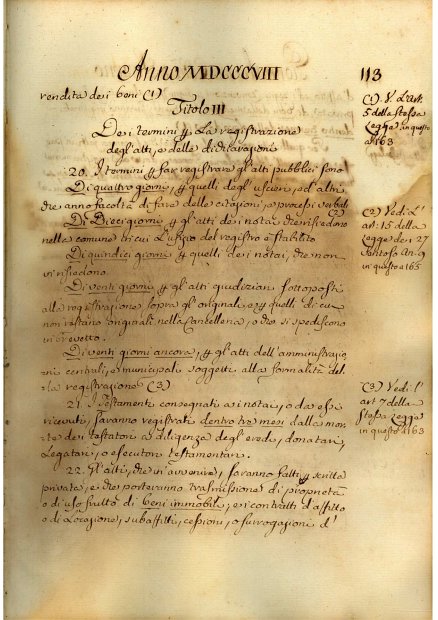 Anno MDCCCVIII
113
vendita dei beni (1)
Titolo III
Dei termini p La registrazione
degl'atti, e delle dichiarazioni
20. I termini p far registrare gl'atti pubblici sono
Di quattro giorni, p quelli degl'uscieri, ed altri
che anno facoltà di fare delle citazioni, e processi verbali
Di Dieci giorni p gl'atti dei notai che risiedono (2)
nelle comune in cui L'ufizio del registro è stabilito
Di quindici giorni p quelli dei notai, che non
vi risiedono.
Di venti giorni p gl'atti giudiziari sottoposti
alla registrazione sopra gl'originali, e p quelli di cui
non restano originali nella Cancelleria, o che si spediscono
in brevetto.
Di venti giorni ancora, p gl'atti dell'amministrazio
ni centrali, e municipali soggetti alla formalità del-
la registrazione (3)
21. I Testamenti consegnati ai notai, o da essi
ricevuti, saranno registrati dentro tre mesi dalla mor-
te dei testatori a diligenza degl'eredi, donatari,
Legatari, o esecutori testamentari.
22. Gl'atti, che in avvenire, saranno fatti p scritta
privata, e che porteranno trasmissione di proprietà
o di uso frutto di beni immobili, e i contratti d'affitto
o di Locazione, subaffitti, cessioni, o surrogazioni d'
(1) V. L'art.
5 della stessa
Legge in questo
a 163
(2) Vedi L'
art. 15 della
Legge de 27
Ventoso An. 9
in questo a 165
(3) Vedi L'
art 7 della
stessa Legge
in questo a 163